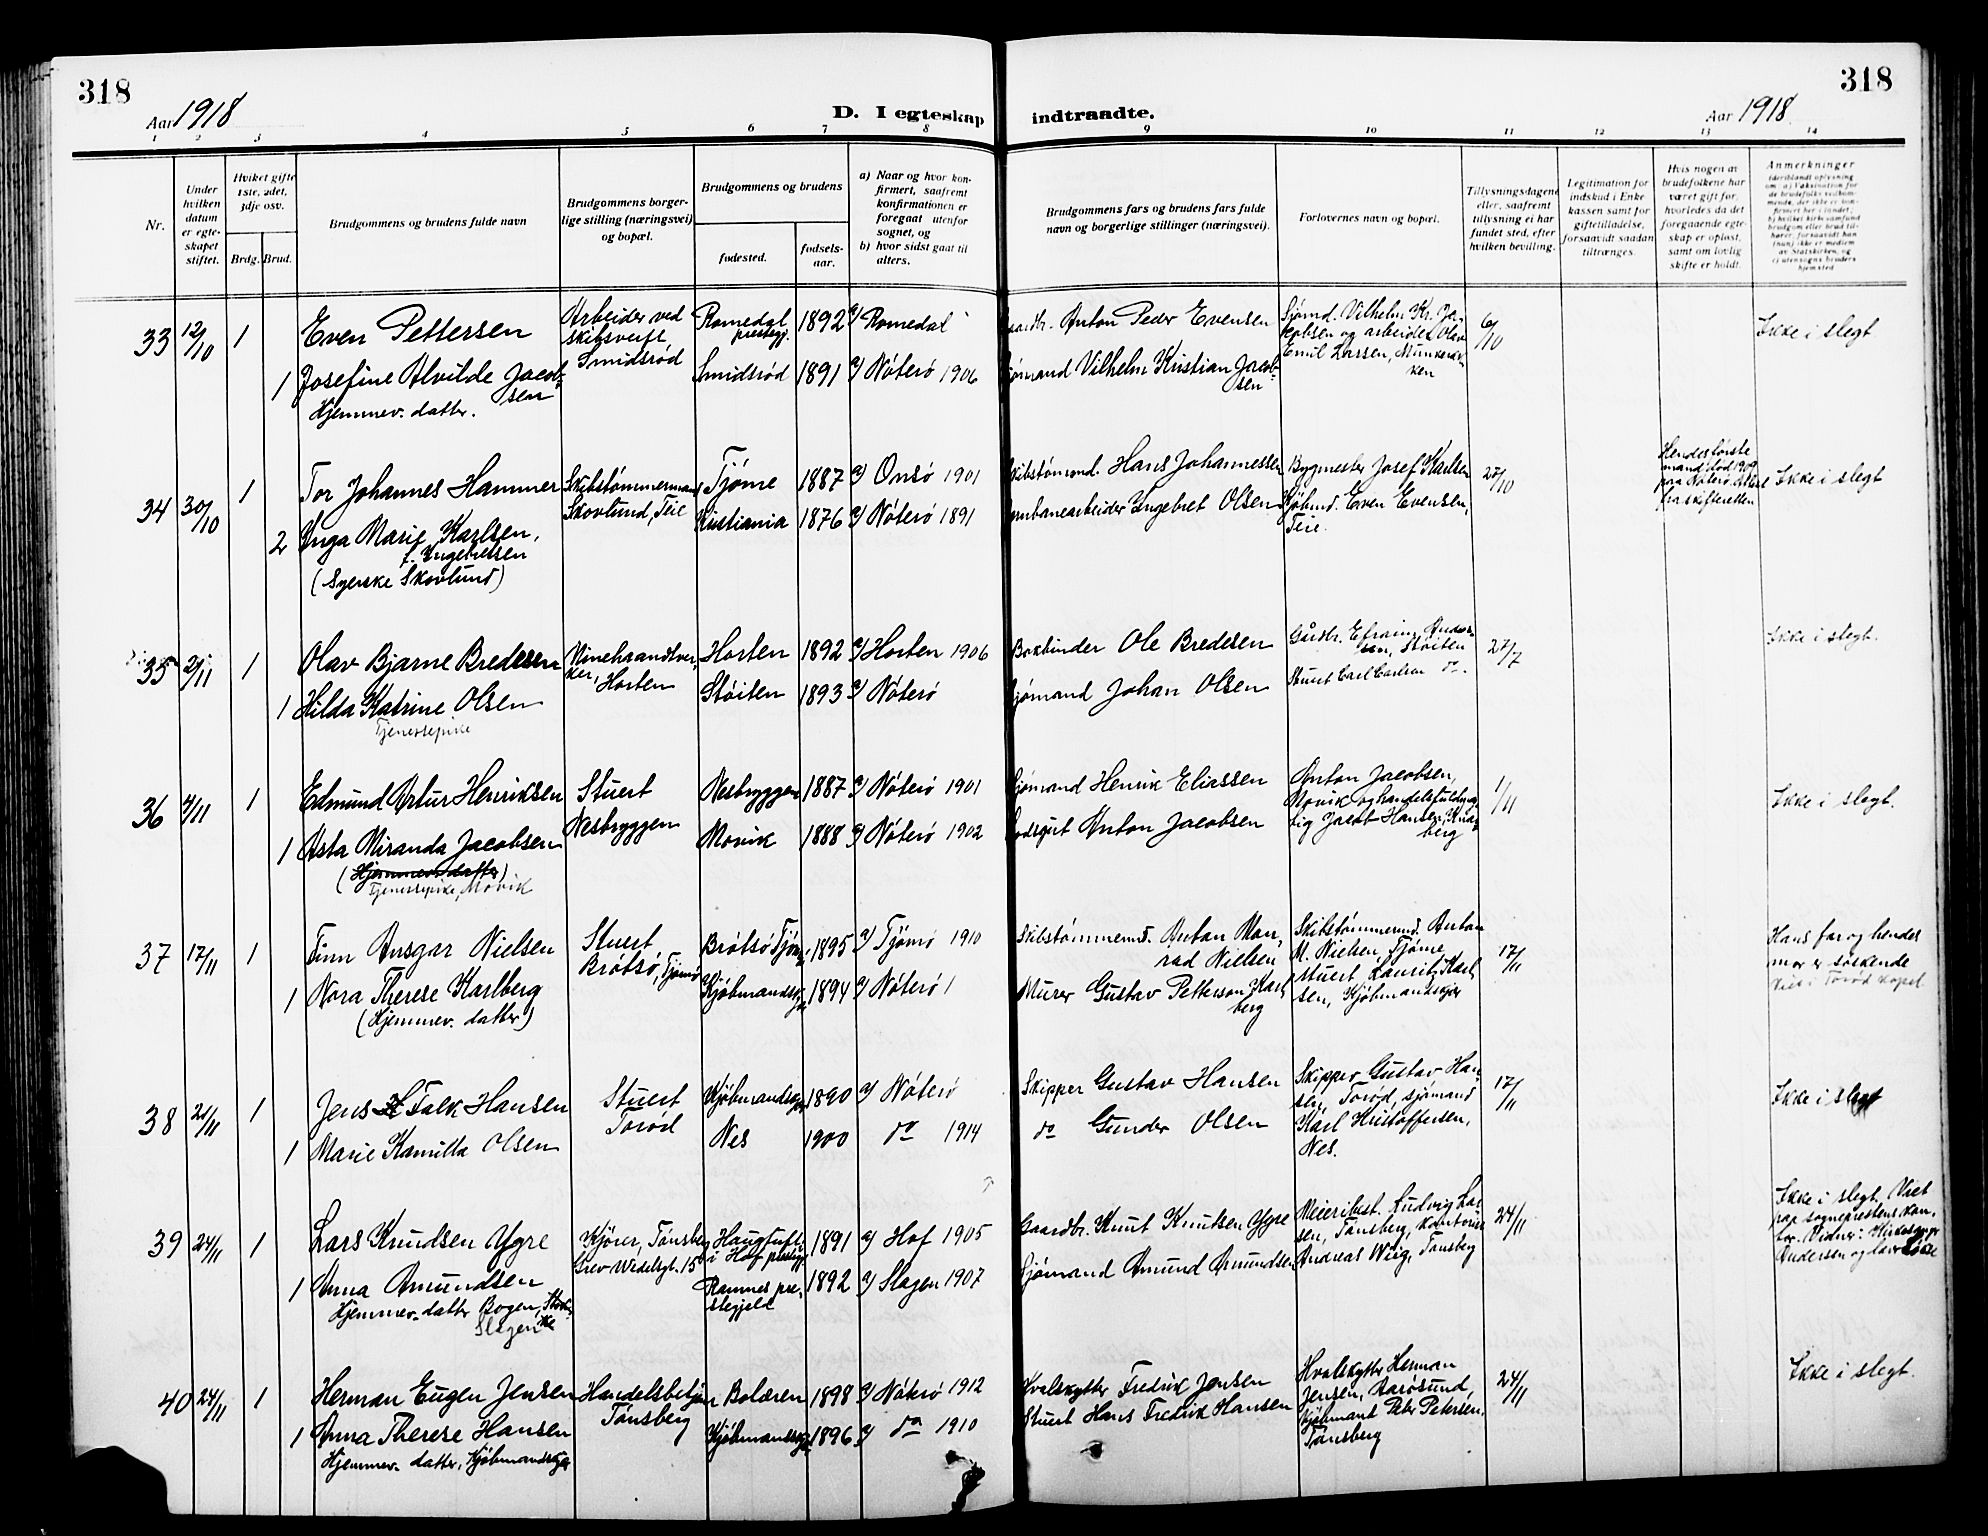 318
318
Aar 1918
D. I egteskap indtraadte.
Aar 1918
1 2 3 4 5 6 7 8 9 10 11 12 13 14
Nr.
Under hvilken datum er egteskapet stiftet.
Hvilket gifte 1ste, 2det, 3dje osv.
Brdg. Brud.
Brudgommens og brudens fulde navn
Brudgommens borgerlige stilling (næringsvei) og bopæl.
Brudgommens og brudens
fødested.
fødselsaar.
a) Naar og hvor konfirmert, saafremt konfirmationen er foregaat utenfor sognet, og
b) hvor sidst gaat til alters.
Brudgommens fars og brudens fars fulde navn og borgerlige stillinger (næringsvei).
Forlovernes navn og bopæl.
Tillysningsdagene eller, saafremt tillysning ei har fundet sted, efter hvilken bevilling.
Legitimation for indskud i Enkekassen samt for giftetilladelse, forsaavidt saadan tiltrænges.
Hvis nogen av brudefolkene har været gift før, hvorledes da det foregaaende egteskap er opløst, samt om lovlig skifte er holdt.
Anmerkninger
33 12/10 1
Even Pettersen
Arbeider ved skibsverft, Smidsrød
Romedal prestegj. 1892 a) Romedal
Anton Peder Evensen
Sjømd. Vilhelm Kr. Jakobsen og arbeider Olav Emil Larsen,
6/10
Ikke i slegt
1 Josefine Alvilde Jacobsen
Hjemmev. datter.
Smidsrød 1891 a) Nøterø 1906
Sjømand Vilhelm Kristian Jacobsen
34 30/10 1
Tor Johannes Hammer
Skibstømmermand Skovlund, Teie
Tjøme 1887 a) Onsø 1901
Skibstømmd. Hans Johannessen
Bygmester Josef Karlsen
Kjøbmd. Even Evensen, Teie.
27/10
Hendes første mand død 1909 paa Nøterø.
Ikke i slegt
2 Inga Marie Karlsen, f. Ingebretsen
(Syerske Skovlund)
Kristiania 1876 a) Nøterø 1891
Ingebret Olsen
35 2/11 1
Olav Bjarne Bredesen
Minehaandtverker, Horten
Horten 1892 a) Horten 1906
Bokbinder Ole Bredesen
Gårdbr. Efraim Andersen, Støiten
Stuert Carl Carlsen do.
27/7
Ikke i slegt.
1 Hilda Katrine Olsen
Tjenestepike
Støiten 1893 a) Nøterø
Sjømand Johan Olsen
36 4/11 1
Edmund Artur Henriksen
Stuert Nesbryggen
Nesbryggen 1887 a) Nøterø 1901
Sjømand Henrik Eliassen
Anton Jacobsen, Movik og handelsfuldmægtig Jacob Hansen,
1/11
Ikke i slegt.
1 Asta Miranda Jacobsen
(Hjemmev. datter)
Tjenestepike, Movik
Movik 1888 a) Nøterø 1902
Anton Jacobsen
37 17/11 1
Finn Ansgar Nielsen
Stuert Brøtsø, Tjømø
Brøtsø Tjømø 1895 a) Tjømø 1910
Skibstømmermd. Anton Manrad Nielsen
Skibstømmermd. Anton M. Nielsen, Tjøme
stuert Laurits Karlsen, Kjøbmandskjær
17/11
Hans far og hendes mor er søskende
1 Nora Therese Karlberg
(Hjemmev. datter)
Kjøbmandskjær 1894 a) Nøterø 1
Murer Gustav Petterson Karlberg
38 21/11 1
Jens Falk Hansen
Stuert Torød
Kjøbmandskjær 1890 a) Nøterø
Skipper Gustav Hansen
Skipper Gustav Hansen, Torød, sjømand Karl Kristoffersen, Nes.
17/11
Ikke i slegt
1 Marie Kamilla Olsen
Nes 1900 do 1914
do Gunder Olsen
39 24/11 1
Lars Knudsen Ygre
Kjører, Tønsberg Grev Wedelsgt. 15
i Hof prestegj. 1891 a) Hof 1905
Gaardbr. Knut Knutsen Ygre
Meieribest. Ludvig Larsen, Tønsberg, kontorist Andreas Wiig, Tønsberg
24/11
Ikke i slegt. Viet paa sogneprestens kontor.
1 Anna Amundsen
Hjemmev. datter Bogen, Slagen
Ramnes prestegjeld 1892 a) Slagen 1907
Sjømand Amund Amundsen
40 24/11 1
Herman Eugen Jensen
Handelsbetjen Tønsberg
Bolæren 1898 a) Nøterø 1912
Hvalskytter Fredrik Jensen
Hvalskytter Herman Jensen, Aarøsund,
Kjøbmand Peter Petersen, Tønsberg
24/11
Ikke i slegt.
1 Anna Therese Hansen
Hjemmev. datter, Kjøbmandskjær
Kjøbmandskjær 1896 a) do 1910
Stuert Hans Fredrik Hansen